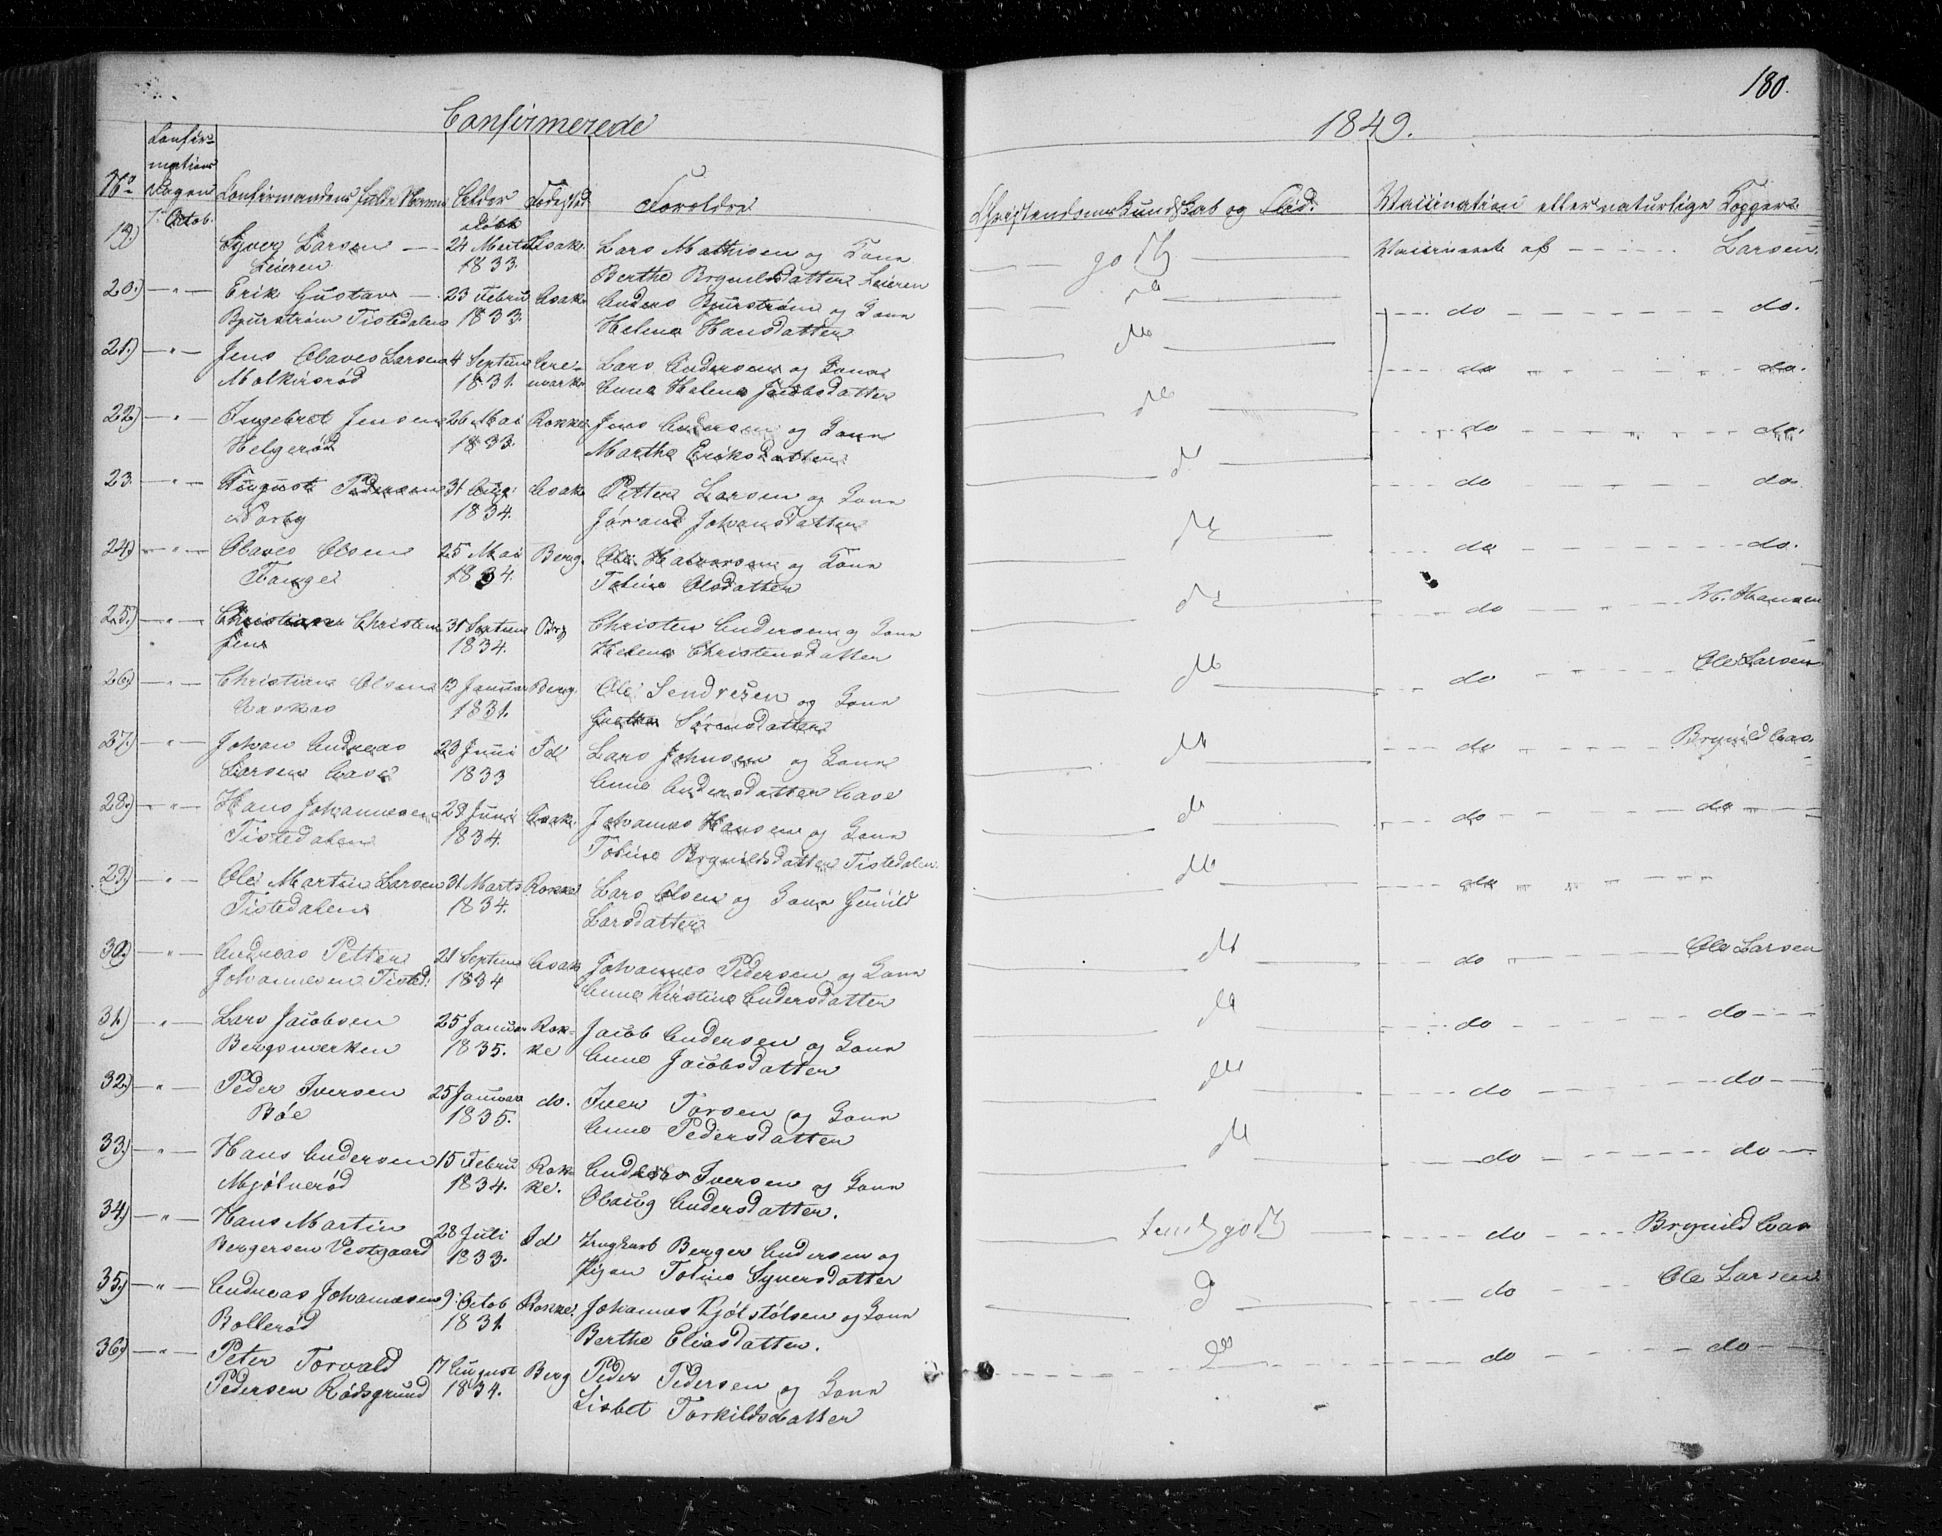 180.
Confirmerede
1849.
No Confirmations Dagen Confirmandens fulde Navn Alder døbt Fødested Forældre Christendoms Kundskab og Flid. Vaccination eller naturlige Kopper
7 Octob.
19) Syver Larsen — 24 Marts Asak Lars Mathisen og Kone godt Vaccinerede af Larsen.
Leieren 1833. Berthe Brynildsdatter Leieren
20.) — " — Erik Gustav — 23 Febru Asak Anders Bjurstrøm og Kone do do do.
Bjurstrøm Tistedalen 1833. Helene Hansdatter
21.) — " — Jens Olaves Larsen 4 Septem Are- Lars Andersen og Kone do do do.
1831. mark Anne Helene Jacobsdatter
22) — " — Ingebret Jensen 26 Mai Rokke Jens Andersen og Kone do do do.
Helgerød 1833. Marthe Eriksdatter
23. — " — August Pedersen 31 Aug. Asak Petter Larsen og Kone do do do.
Norby 1834. Jørand Johansdatter
24) — " — Olaves Olsen 25 Mai Berg. Ole Halvorsen og Kone do do do.
Tange 1834. Toline Olsdatter
25.) — " — Christian Christen 31 Septem Christen Andersen og Kone do do M. Hansen
sen 1834. Helene Christensdatter
26.) — " — Christian Olsen 13 Januar Berg. Ole Sendresen og Kone do do Ole Larsen
Aaskas 1831. Sørensdatter
27.) — " — Johan Andreas 23 Juni Id Lars Johnsen og Kone do do Brynild Aas
Larsen Aase 1833 Anne Andersdatter Aase
28.) — " — Hans Johannesen 29 Juni Asak Johannes Hansen og Kone do do do
Tistedalen 1834. Toline Brynildsdatter Tistedalen.
29.) — " — Ole Martin Larsen 31 Marts Rokke Lars Olsen og Kone Gunild do do
Tistedalen 1834. Larsdatter
30.) — " — Andreas Petter 21 Septem Asak Johannes Pedersen og Kone do do Ole Larsen
Johannesen Tisted: 1834 Anne Kirstine Andersdatter
31.) — " — Lars Jacobsen 25 Januar Rok- Jacob Andersen og Kone do do do
Bergsmerken 1835. ke Anne Jacobsdatter
32.) — " — Peder Iversen 25 Januar do. Iver Torsen og Kone do do do
Bøe 1835. Anne Pedersdatter
33.) — " — Hans Andersen 15 Febru Rok- Andreas Iversen og Kone do do do
Mjølnerød 1834. ke. Olaug Andersdatter.
34.) — " — Hans Martin 28 Juli Id Ungkarl Berger Andersen og temlig godt do Brynild Aas
Bergersen Vestgaard 1833. Pigen Toline Syversdatter
35.) — " — Andreas Johannesen 9 Octob Rokke Johannes Kjølstølsen og Kone do do Ole Larsen
Bollerød 1831. Berthe Eliasdatter.
36.) — " — Peter Torvald 17 August Berg Peder Pedersen og Kone do do do
Pedersen Rødsgrund 1834. Lisbet Torkildsdatter